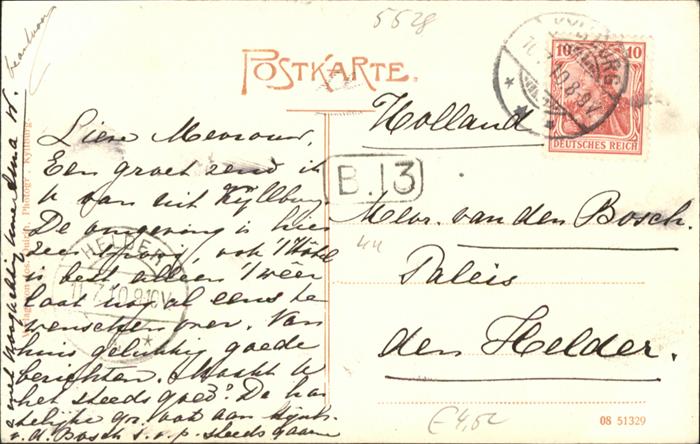 5528
POSTKARTE.
KYLLBURG
10.7.10.8-9V.
10 10
DEUTSCHES REICH
Holland
B.13
Mevr. van den Bosch.
Paleis
den Helder.
44
HELDER
11.7.10.8-10V.
Lieve Mevrouw,
Een groet zend ik
u van uit Kyllburg
De omgeving is hier
zeer mooi, ook 't Hôtel
is best alleen 't wêer
laat nog al eens te
wenschen over. Van
huis gelukkig goede
berichten. Maakt U
het steeds goed? De har
telijke groet ook aan
v. d. Bosch s.v.p. steeds gaarne
08 51329